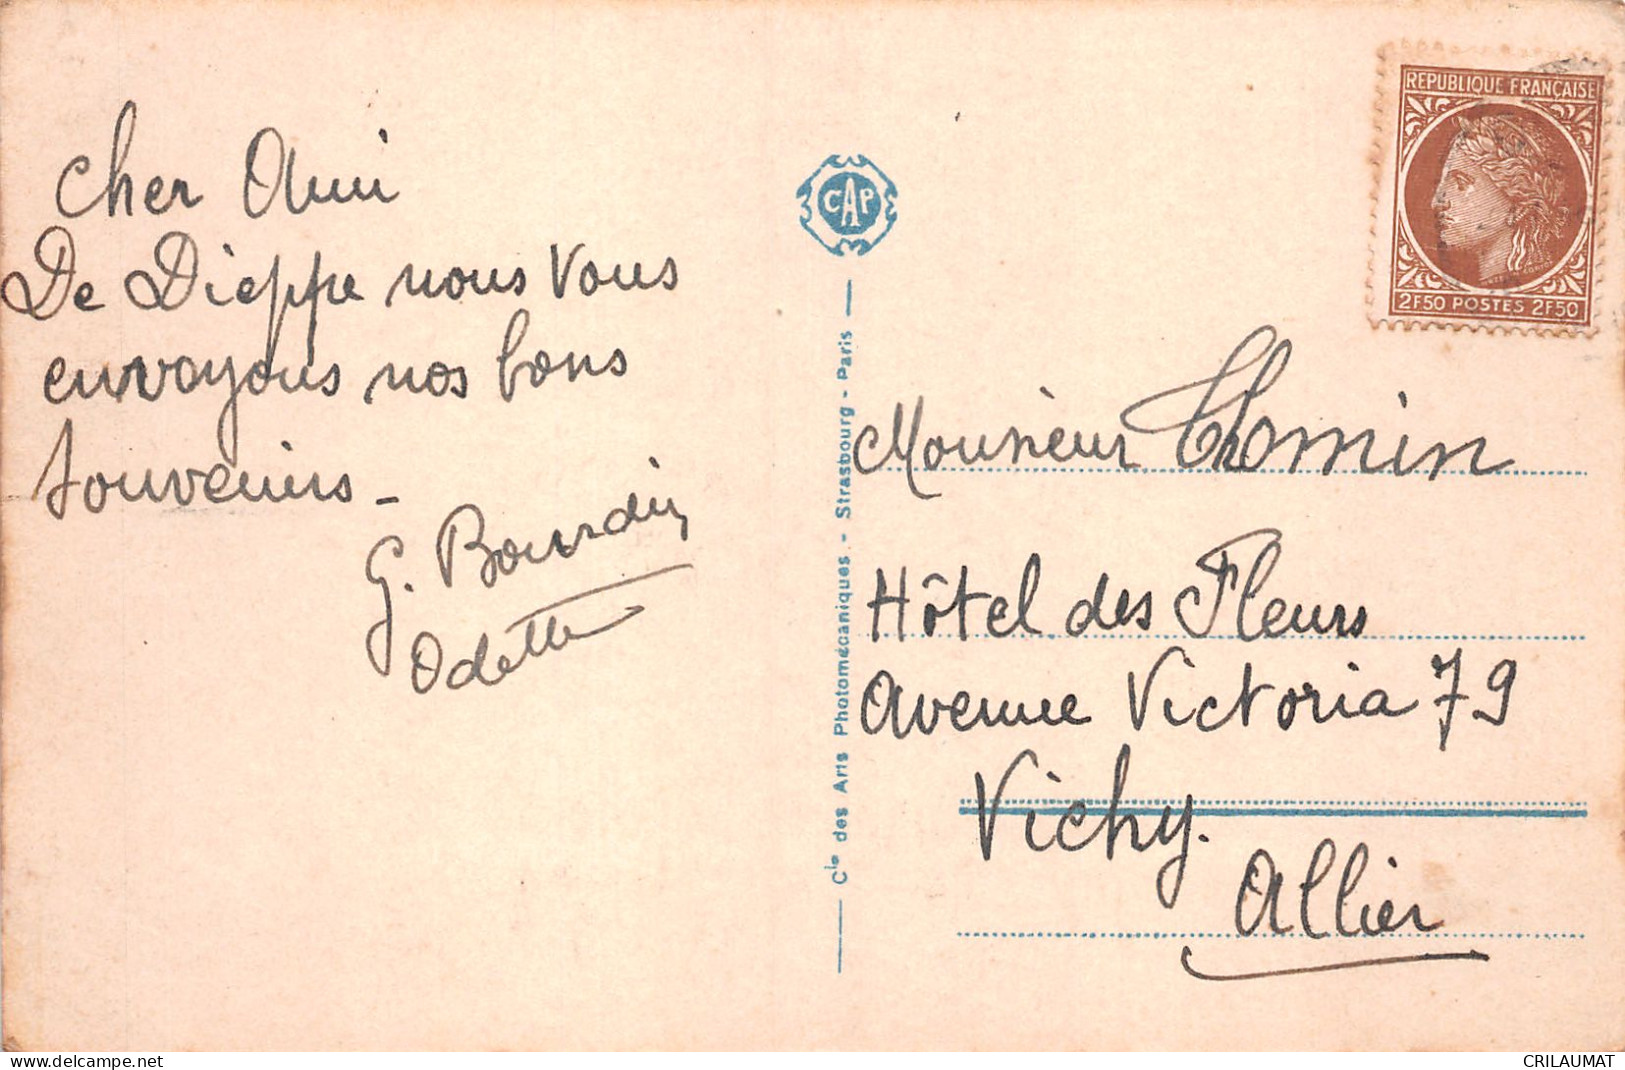 Cher Ami
De Dieppe nous vous
envoyons nos bons
souvenirs _
G. Bourdin
Odette
CAP
Cie des Arts Photomécaniques - Strasbourg - Paris
REPUBLIQUE FRANÇAISE
2F50 POSTES 2F50
Monsieur Thomin
Hôtel des Fleurs
Avenue Victoria 79
Vichy.
Allier
https://www.delcampe.net
CRILAUMAT